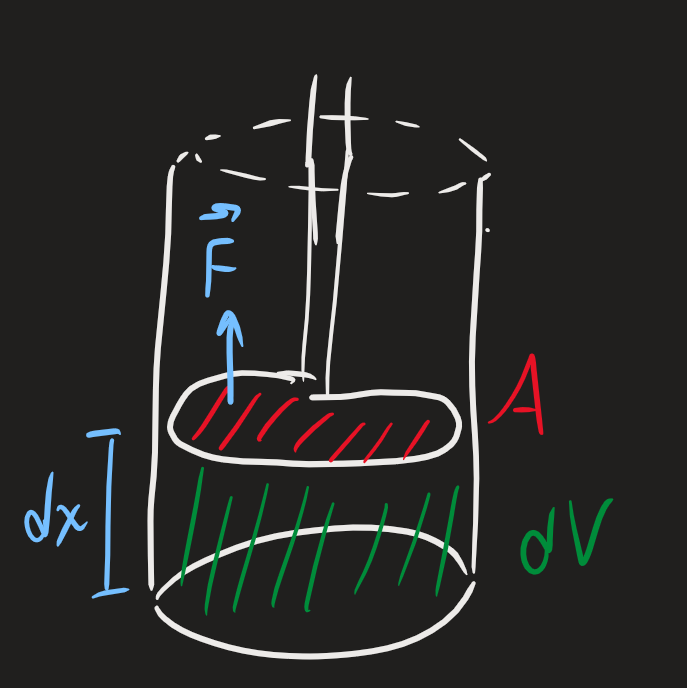 F⃗
A
dx
dV